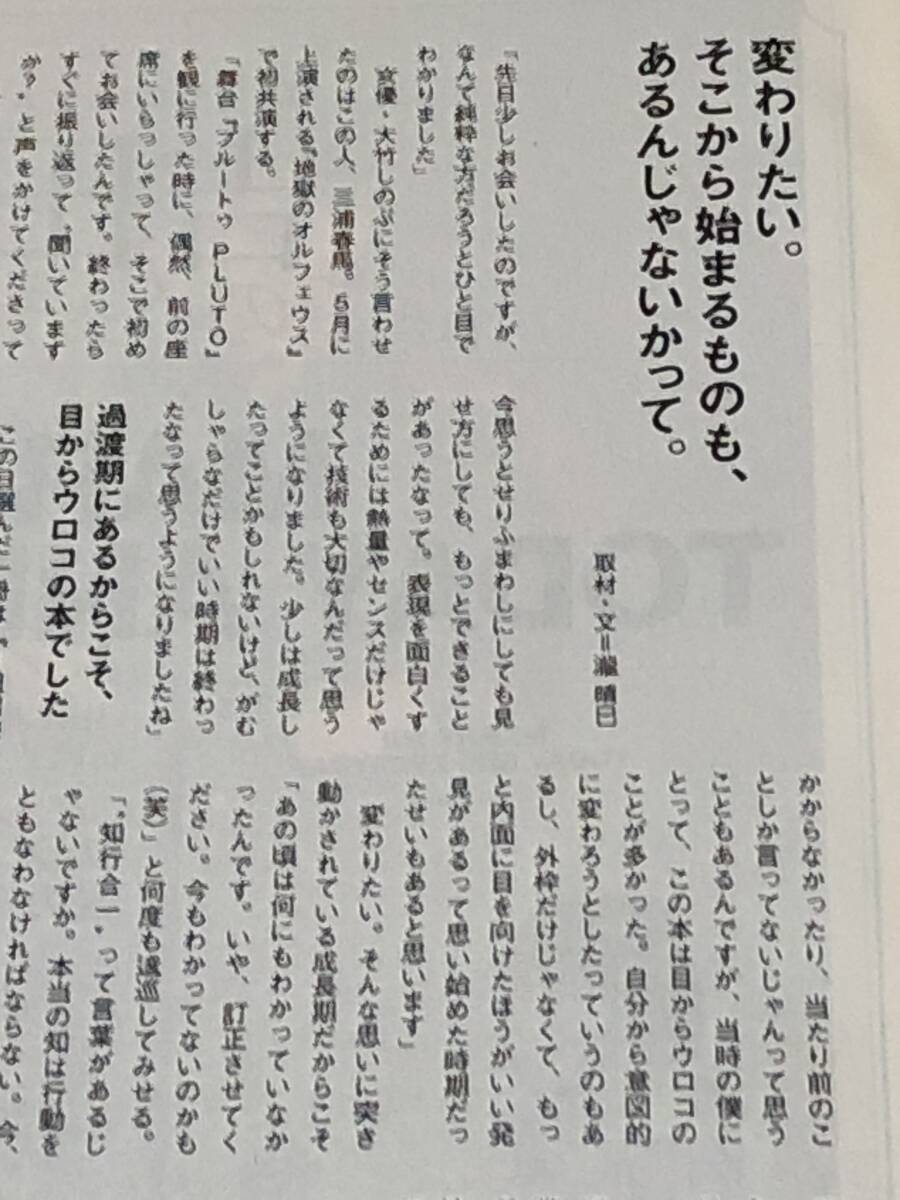 変わりたい。
そこから始まるものも、
あるんじゃないかって。
取材・文＝瀧 晴巳
「先日少しお会いしたのですが、
なんて純粋な方だろうとひと目で
わかりました」
女優・大竹しのぶにそう言わせ
たのはこの人、三浦春馬。５月に
上演される『地獄のオルフェウス』
で初共演する。
「舞台『プルートゥ PLUTO』
を観に行った時に、偶然、前の座
席にいらっしゃって、そこで初め
てお会いしたんです。終わったら
すぐに振り返って〝聞いています
か？〟と声をかけてくださって
今思うとせりふまわしにしても見
せ方にしても、もっとできること
があったなって。表現を面白くす
るためには熱量やセンスだけじゃ
なくて技術も大切なんだって思う
ようになりました。少しは成長し
たってことかもしれないけど、がむ
しゃらなだけでいい時期は終わっ
たなって思うようになりましたね」
過渡期にあるからこそ、
目からウロコの本でした
この日選んだ一冊は
かからなかったり、当たり前のこ
としか言ってないじゃんって思う
こともあるんですが、当時の僕に
とって、この本は目からウロコの
ことが多かった。自分から意図的
に変わろうとしたっていうのもあ
るし、外枠だけじゃなくて、もっ
と内面に目を向けたほうがいい発
見があるって思い始めた時期だっ
たせいもあると思います」
変わりたい。そんな思いに突き
動かされている成長期だからこそ
「あの頃は何にもわかっていなか
ったんです。いや、訂正させてく
ださい。今もわかってないのかも
（笑）」と何度も逡巡してみせる。
「〝知行合一〟って言葉があるじ
ゃないですか。本当の知は行動を
ともなわなければならない。今、